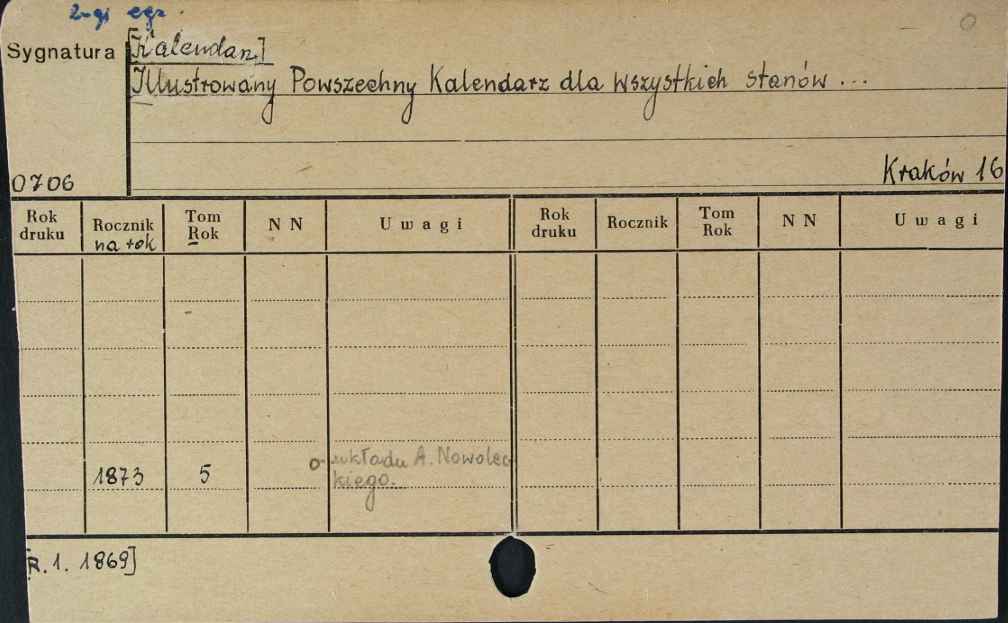 2-gi egz.
Sygnatura [Kalendarz]
Illustrowany Powszechny Kalendarz dla wszystkich stanów ...
0706
Kraków 16
Rok druku Rocznik na rok Tom Rok NN Uwagi Rok druku Rocznik Tom Rok NN Uwagi
1873 5 układu A. Nowolec-
kiego.
[R. 1. 1869]